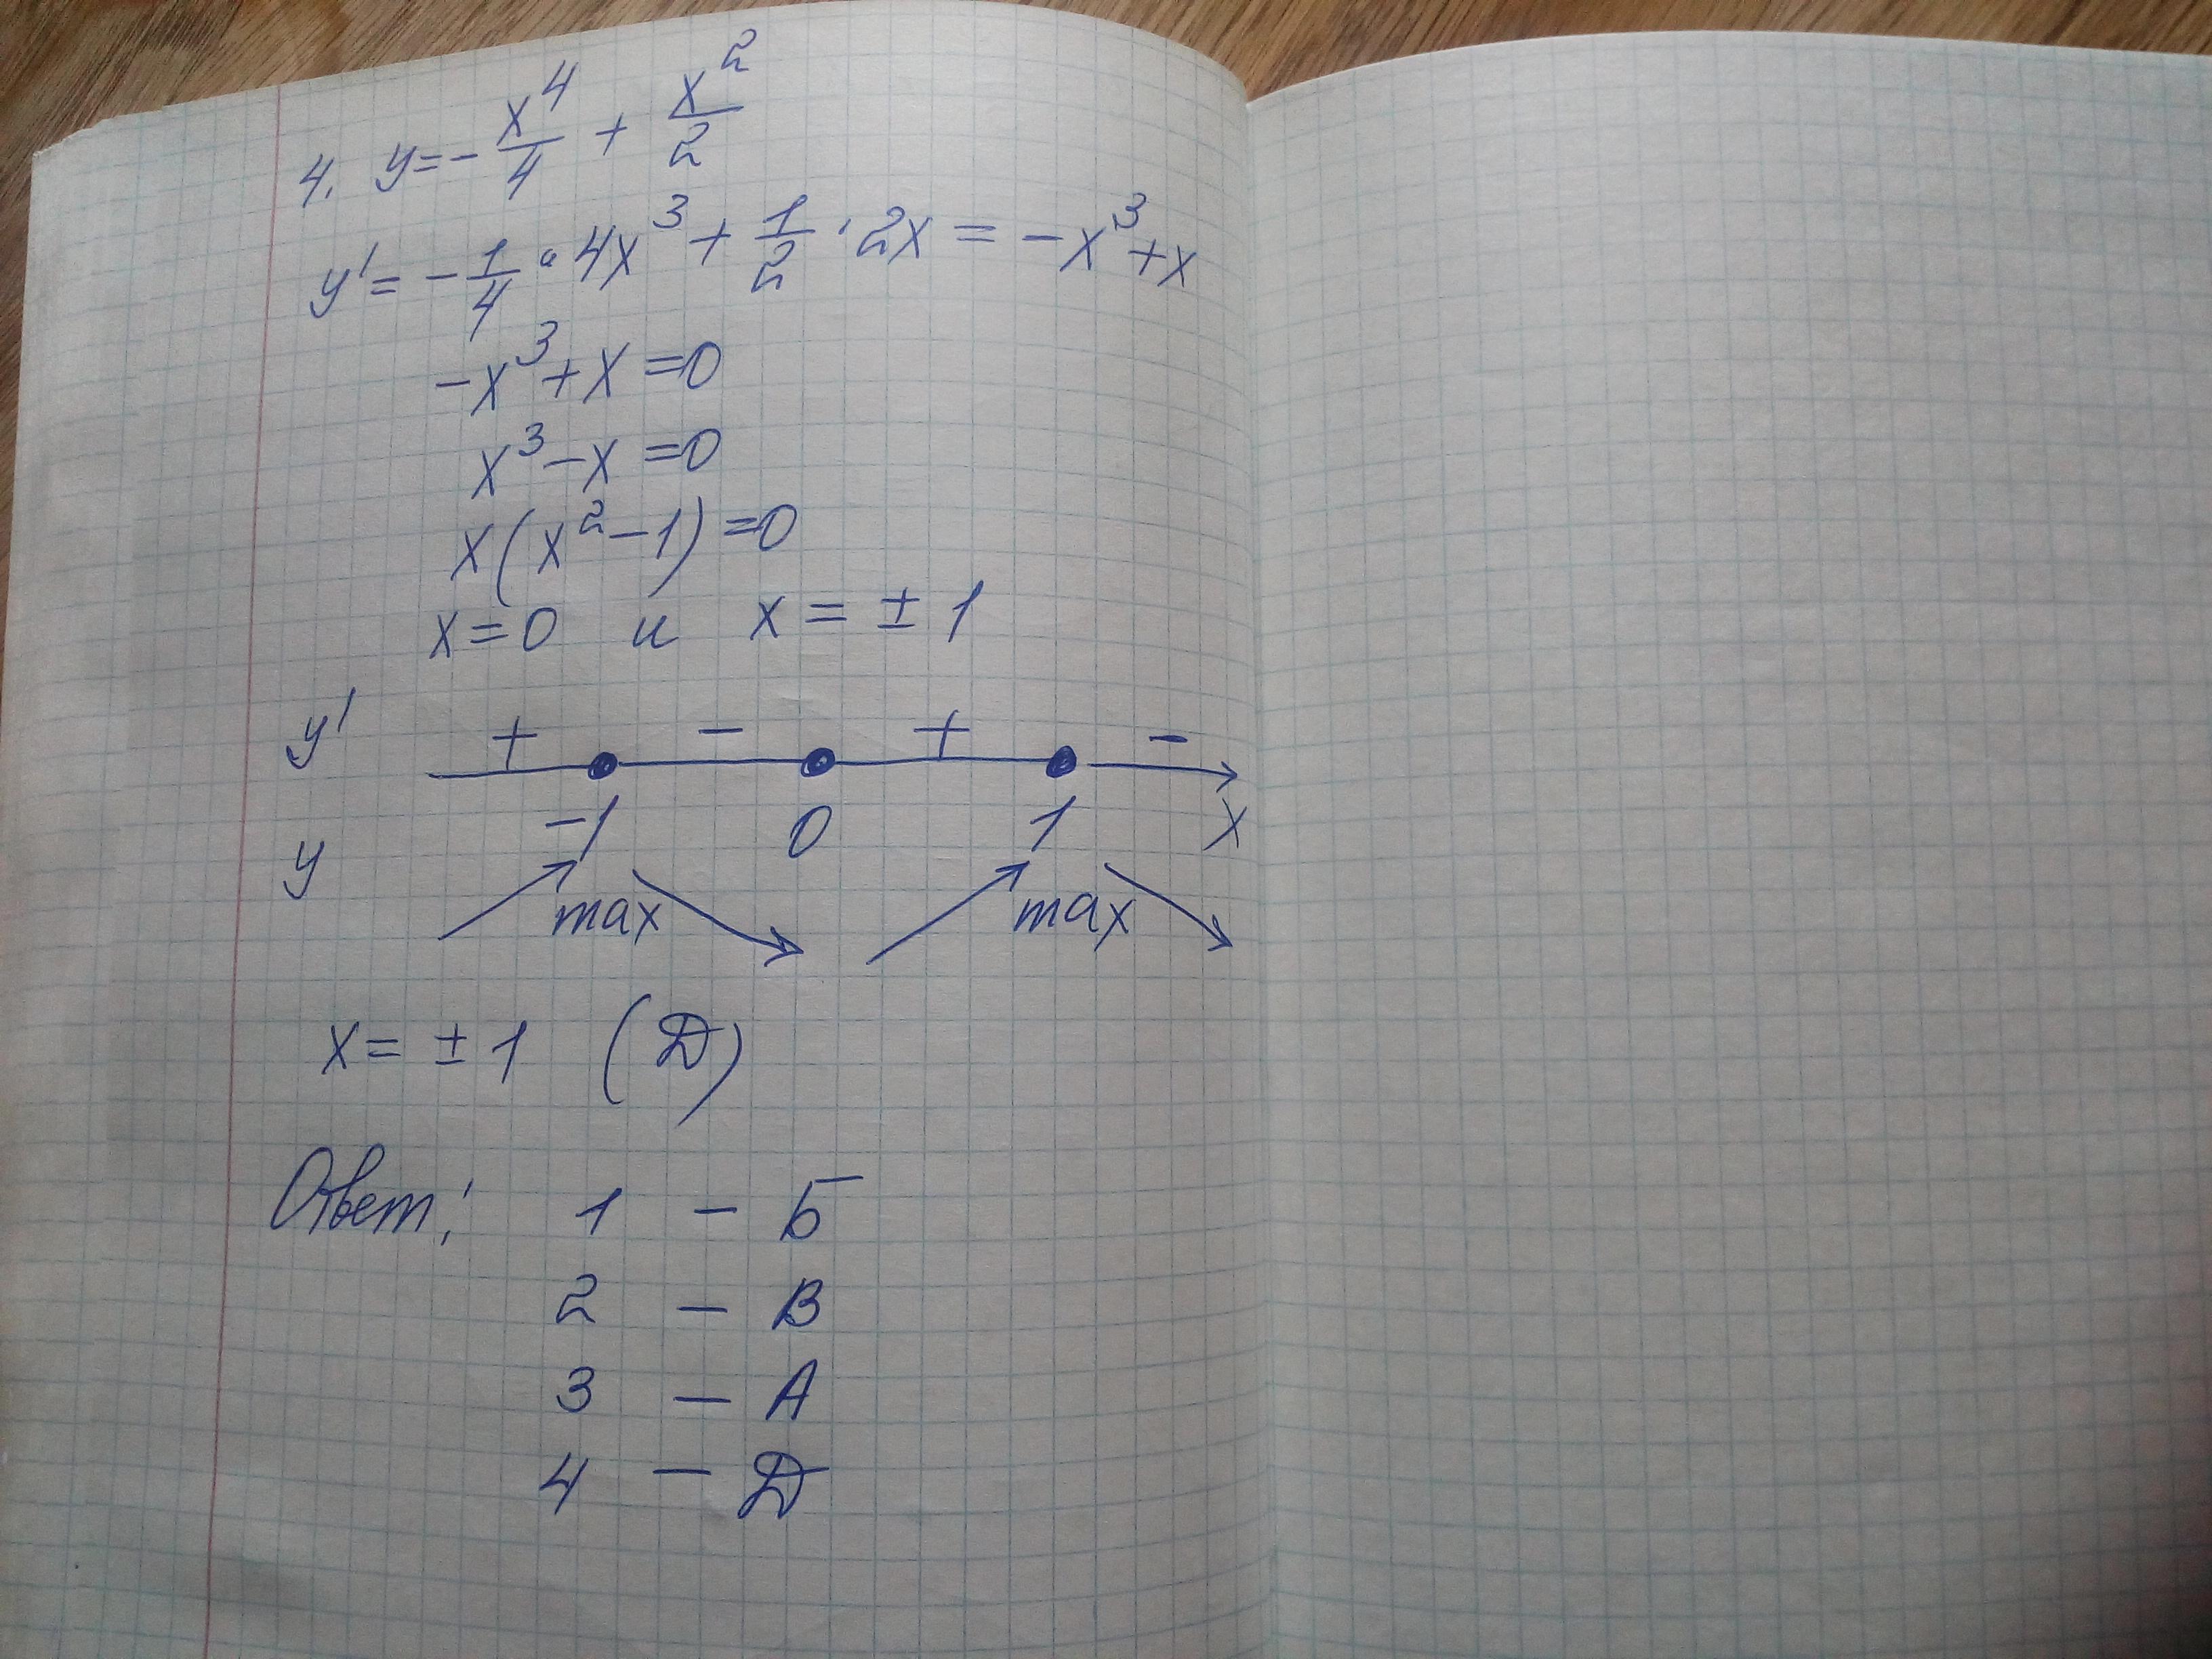 4. y=-x⁴/4 + x²/2
y'=-1/4·4x³+1/2·2x=-x³+x
-x³+x=0
x³-x=0
x(x²-1)=0
x=0 и x=±1
y' + - + -
-1 0 1 x
y max max
x=±1 (Д)
Ответ: 1 - Б
2 - В
3 - А
4 - Д